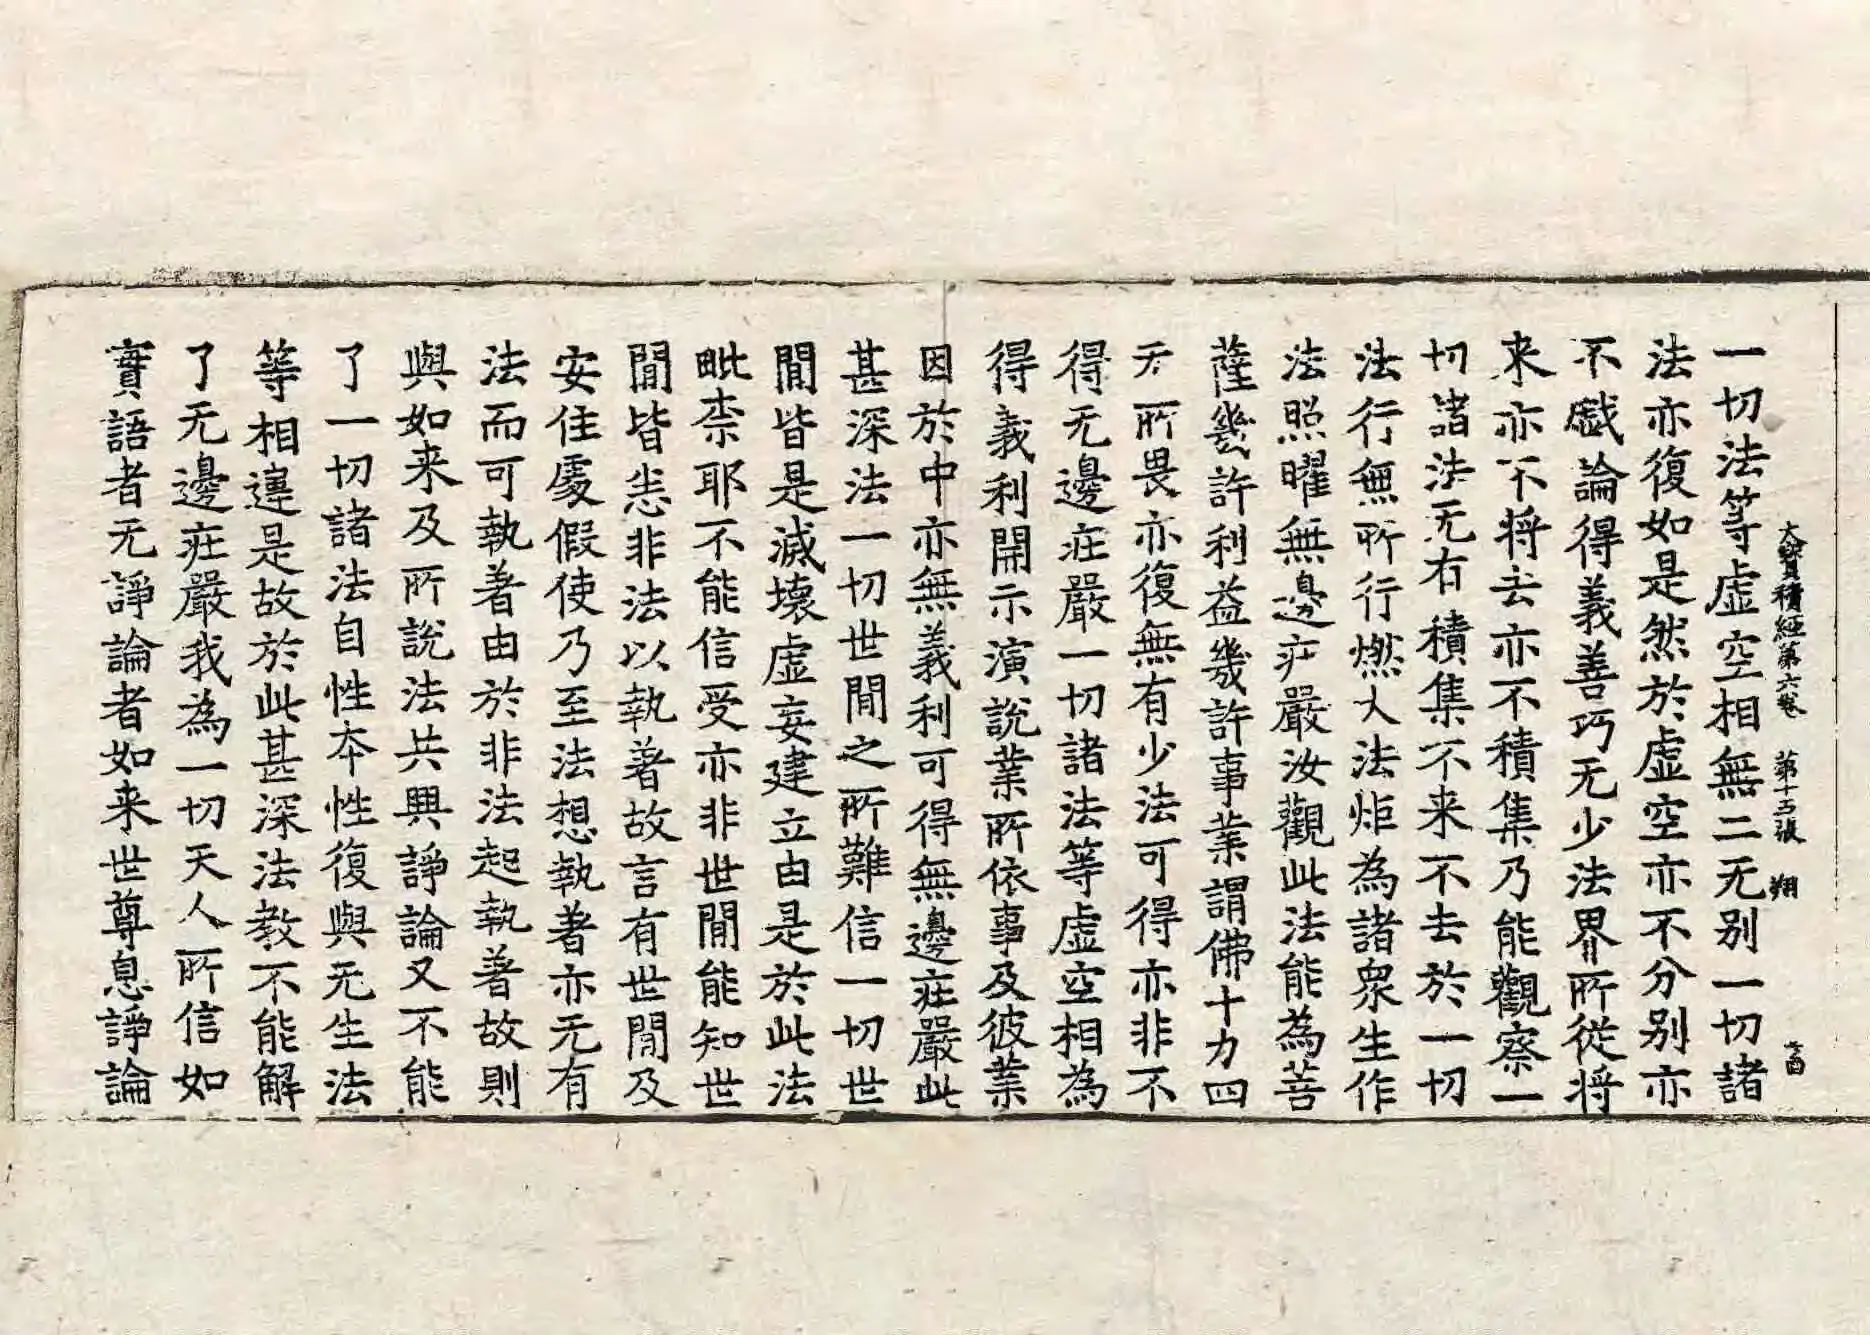 大寶積經第六卷 第十五張 翔
一切法等虛空相無二无别一切諸
法亦復如是然於虛空亦不分别亦
不戲論得義善巧无少法界所從将
来亦不将去亦不積集乃能觀察一
切諸法无有積集不来不去於一切
法行無所行燃大法炬為諸衆生作
法照曜無邊庄嚴汝觀此法能為菩
薩幾許利益幾許事業謂佛十力四
无所畏亦復無有少法可得亦非不
得无邊庄嚴一切諸法等虛空相為
得義利開示演說業所依事及彼業
因於中亦無義利可得無邊庄嚴此
甚深法一切世間之所難信一切世
間皆是滅壞虛妄建立由是於此法
毗柰耶不能信受亦非世間能知世
間皆悉非法以執著故言有世間及
安住處假使乃至法想執著亦无有
法而可執著由於非法起執著故則
與如来及所說法共興諍論又不能
了一切諸法自性夲性復與无生法
等相違是故於此甚深法教不能解
了无邊庄嚴我為一切天人所信如
實語者无諍論者如来世尊息諍論